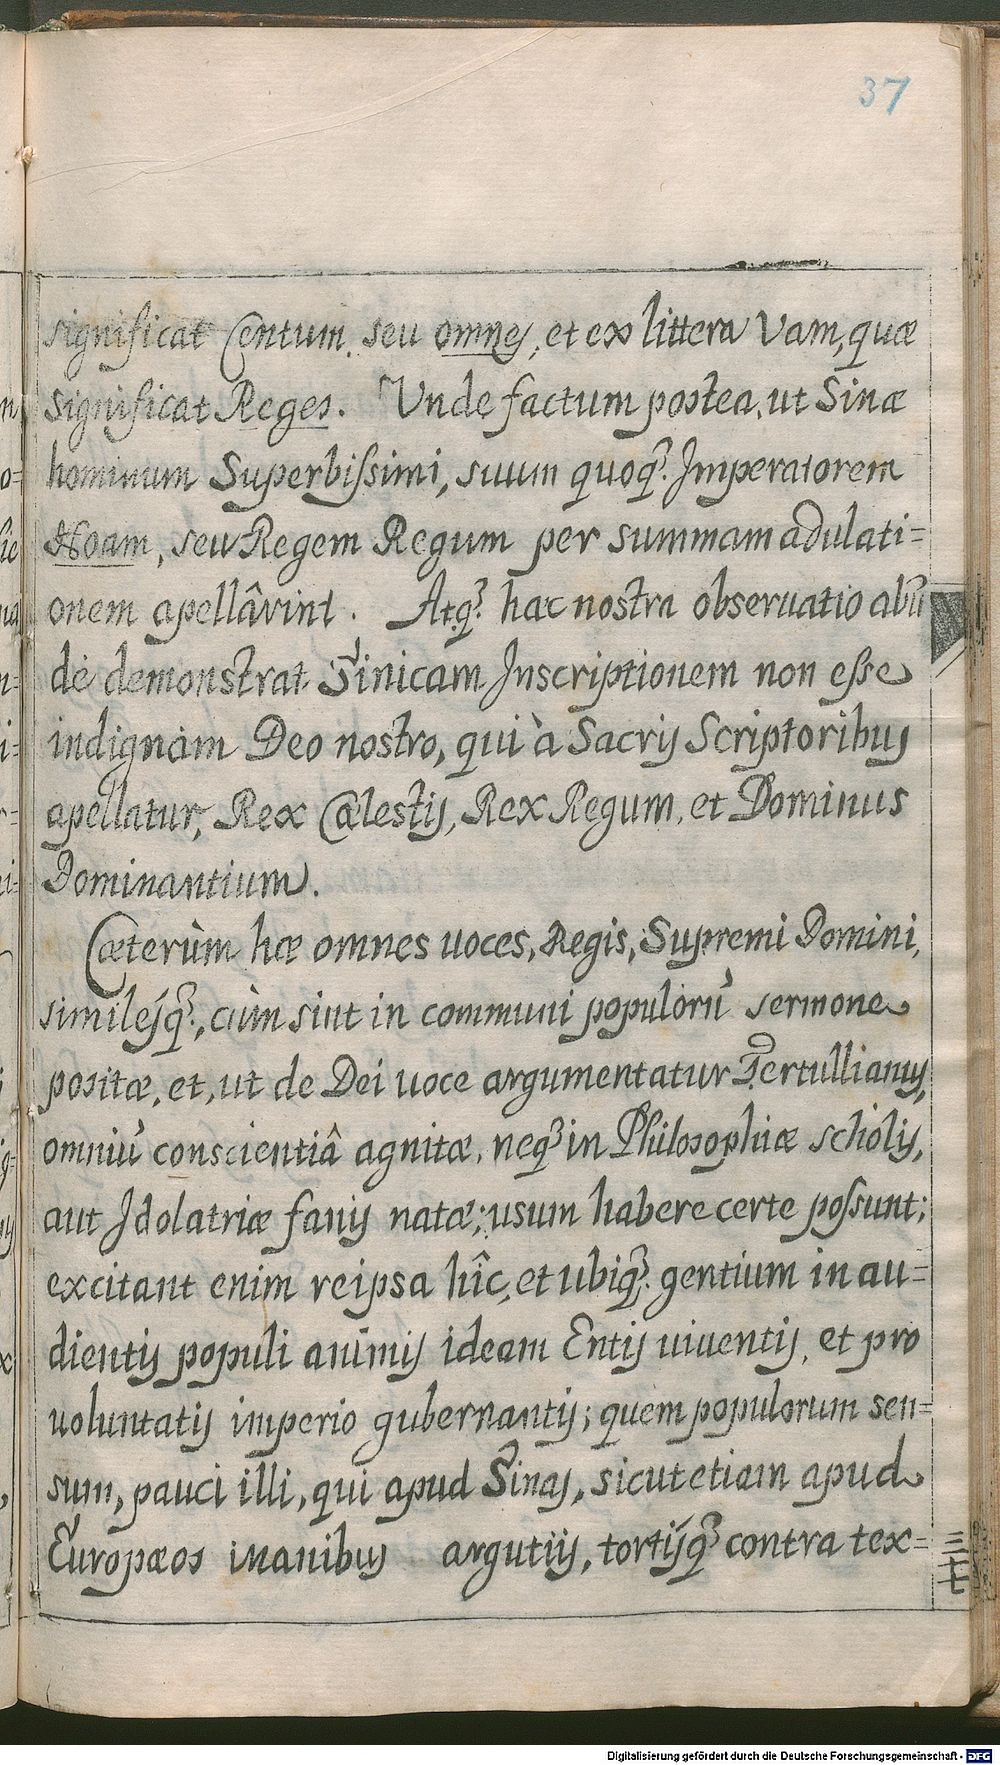 37
significat Centum, seu omnes, et ex littera Vam, quæ
significat Reges. Unde factum postea, ut Sinæ
hominum Superbissimi, suum quoq; Imperatorem
Hoam, seu Regem Regum per summam adulati=
onem apellârint. Atq; hæc nostra obseruatio abũ
dè demonstrat Sinicam Inscriptionem non esse
indignam Deo nostro, qui à Sacris Scriptoribus
apellatur, Rex Cælestis, Rex Regum, et Dominus
Dominantium.
Cæterùm hæ omnes uoces, Regis, Supremi Domini,
similesq;, cùm sint in communi populorũ sermone
positæ, et, ut de Dei uoce argumentatur Tertullianus,
omniũ conscientiâ agnitæ, neq; in Philosophiæ scholis,
aut Idolatriæ fanis natæ; usum habere certe possunt;
excitant enim reipsa hîc, et ubiq; gentium in au=
dientis populi animis ideam Entis uiuentis, et pro
uoluntatis imperio gubernantis; quem populorum sen=
sum, pauci illi, qui apud Sinas, sicut etiam apud
Europæos inanibus argutiis, tortisq; contra tex=
三十七
Digitalisierung gefördert durch die Deutsche Forschungsgemeinschaft - DFG